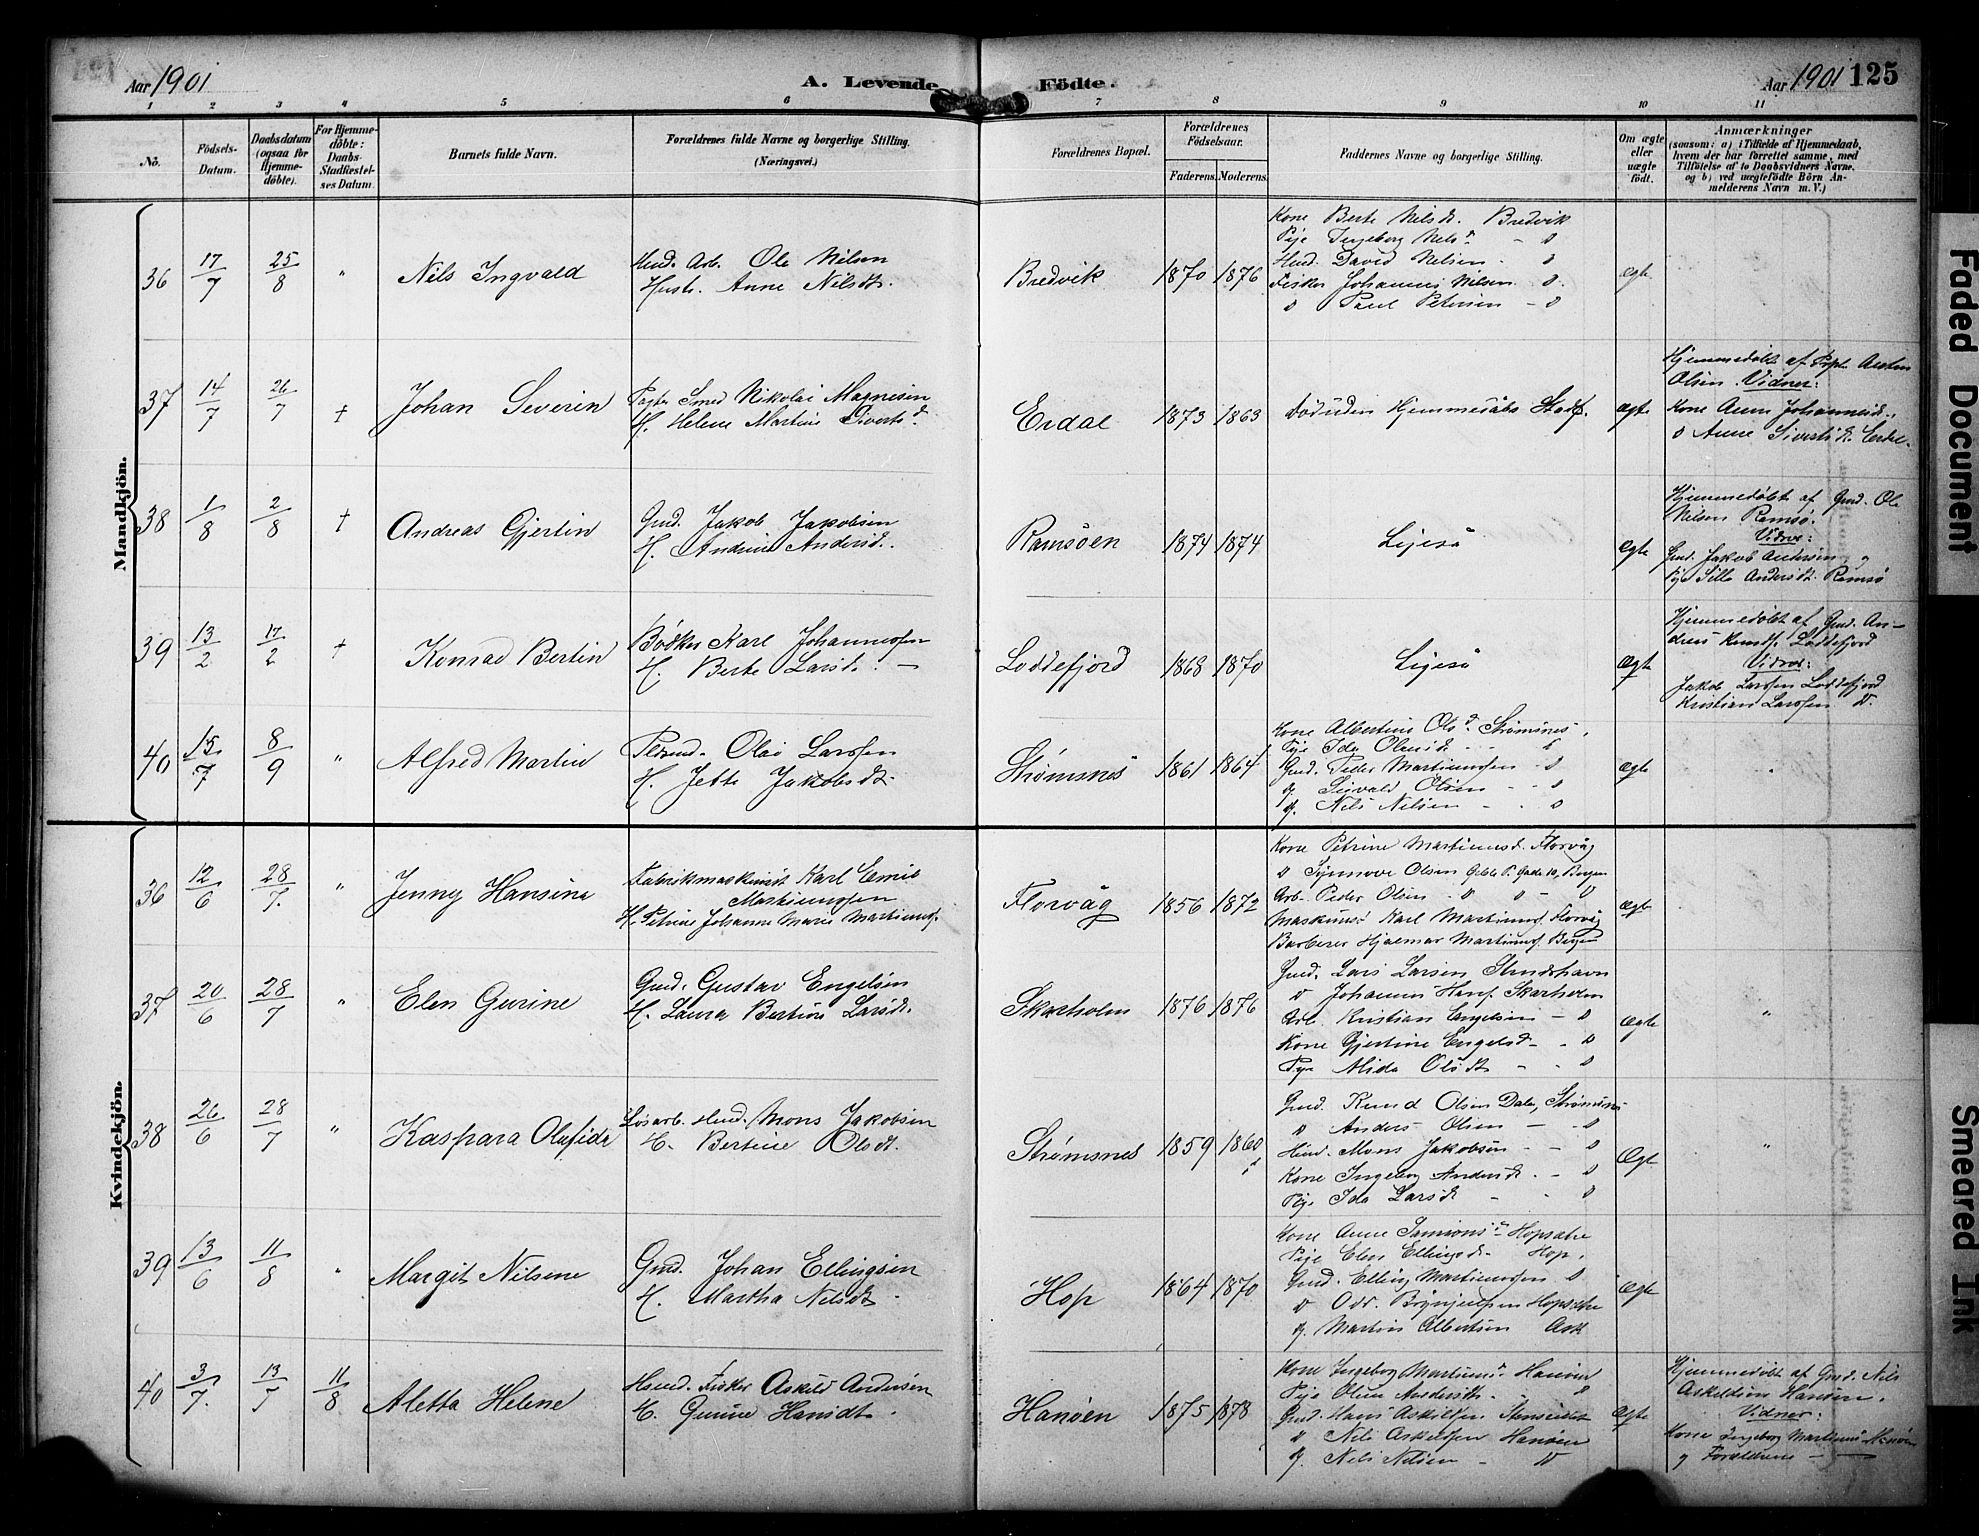 Aar 1901
A. Levende Födte.
Aar 1901 125
1 2 3 4 5 6 7 8 9 10 11
No.
Födsels-Datum.
Daabsdatum (ogsaa for Hjemme-döbte).
For Hjemme-döbte: Daabs-Stadfæstel-ses Datum.
Barnets fulde Navn.
Forældrenes fulde Navne og borgerlige Stilling. (Næringsvei.)
Forældrenes Bopæl.
Forældrenes Födselsaar.
Faderens. Moderens.
Faddernes Navne og borgerlige Stilling.
Om ægte eller uægte födt.
Anmærkninger
(saasom: a) i Tilfælde af Hjemmedaab, hvem der har forrettet samme, med Tilföielse af to Daabsvidners Navne, og b) ved uægtefödte Börn Anmelderens Navn m. V.)
Mandkjön.
36 17/7 25/8 " Nils Ingvald
Husd. Arb. Ole Nilsen
Hustr. Anne Nilsdt.
Bredvik 1870 1876
Kone Berte Nilsdt. Bredvik
Pige Ingeborg Nelsd - D
Husd. David Nilsen - D
Fisker Johannes Nilsen D.
D Paul Petersen - D
ægte
37 14/7 26/7 † Johan Severin
Smed Nikolai Magnesen
H. Helene Martine Siverts d.
Erdal 1873 1863
Död uden Hjemmedåbs Stadf.
ægte
Hjemmedöbt af
Olsen. Vidner:
Kone Anna Johannesd.
D Anne Sivertsdt. Erdal.
38 1/8 2/8 † Andreas Gjertin
Gmd. Jakob Jakobsen
H. Andrine Andersd.
Ramsöen 1874 1874
Ligeså
Ægte
Hjemmedöbt af Gmd. Ole
Nilsen Ramsö.
Vidner:
Gmd. Jakob Andersen og
Pige Silla Andersdt. Ramsö
39 13/2 17/2 † Konrad Bertin
Bödker Karl Johannessen
H. Berte Larsdt. —
Loddefjord 1868 1870
Ligeså
Ægte
Hjemmedöbt af Gmd. An-
dreas Knudsf. Loddefjord
Vidner:
Jakob Larssen Loddefjord
Kristian Larssen D.
40 15/7 8/9 " Alfred Martin
Olai Larssen
H. Jette Jakobsdt.
Strømsnes 1861 1864
Kone Albertine Ols d Strømsnes.
Pige Ida Olsens dt. - D
Gmd. Peder Martinussen - D
g. Sigvald Olsen - - D
g. Nils Nilsen - - D
Ægte "
Kvindekjön.
36 12/6 28/7. " Jenny Hansine
Fabrikmaskinist Karl Emil
Martinussen
H. Petrine Johanne Marie Martinusf.
Florvåg 1856 1872
Kone Petrine Martinusd. Florvåg
D Synnove Olsen P. Gade 10, Bergen
Arb. Peder Olsen D " D
Maskinist Karl Martinusf. Florvåg
Barberer Hjalmar Martinusf. Bergen
Ægte
37 20/6 28/7 " Elen Gurine
Gmd. Gustav Engelsen
H. Laura Bertine Larsdt.
Skarholm 1876 1876
Gmd. Lars Larsen Strudshavn
D Johannes Hansf. Skarholm
Arb. Kristian Engelsen - D
Kone Gjertine Engelsd - - D
Pige Alida Olsdt - - D
Ægte "
38 26/6 28/7 " Kaspara Olufida
Løsarb. Husd. Mons Jakobsen
H. Bertine Olsdt.
Strømsnes 1859 1860
Gmd. Knud Olsen Dale, Strømsnes
D Anders Olsen - - D
Husd. Mons Jakobsen - - D
Kone Ingeborg Andersdt. - D
Pige Ida Larsdt - - D
Ægte "
39 13/6 11/8 " Margit Nilsine
Gmd. Johan Ellingsen
H. Martha Nilsdt.
Hop 1864 1870
Kone Anne Hopsdre
Pige Elen Ellingsdt. Hop.
Gmd. Elling Martinussen D
D Odr. Brynjulfsen
g. Martin Albertsen Ask
Ægte
40 3/7. 13/7 11/8 Aletta Helene
Husmd. Fisker Askild Andersen
H. Gurine Hansdt.
Hanöen 1875 1878
Kone Ingeborg Martinusd. Hanöen
Pige Oline Andersdt. D
Gmd. Hans Askildsen
D Nils Askildsen Hanöen
g. Nils Nilsen - D
Ægte
Hjemmedöbt af Gmd. Nils
Askildsen Hanöen.
Vidner:
Kone Ingeborg Martinusd Hanöen
og Forældrene —
Faded Document
Smeared Ink